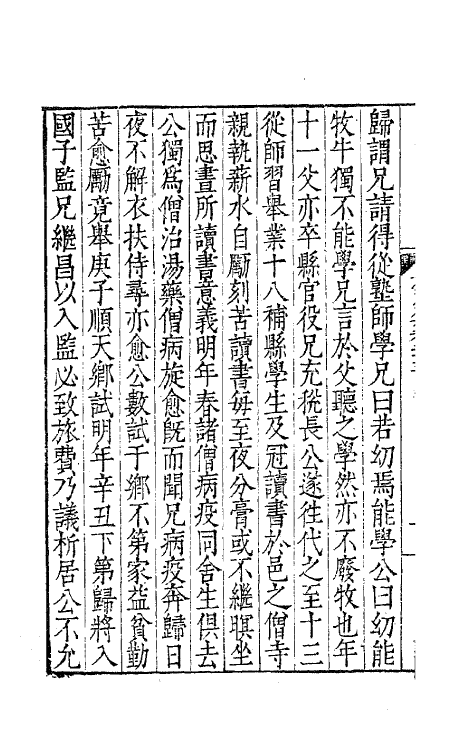 歸謂兄請得從塾師學兄曰若幼焉能學公曰幼能
牧牛獨不能學兄言於父聽之學然亦不廢牧也年
十一父亦卒縣官役兄充稅長公遂往代之至十三
從師習舉業十八補縣學生及冠讀書於邑之僧寺
親執薪水自勵刻苦讀書每至夜分膏或不繼暝坐
而思晝所讀書意義明年春諸僧病疫同舍生俱去
公獨為僧治湯藥僧病旋愈既而聞兄病疫奔歸日
夜不解衣扶侍尋亦愈公數試于鄉不第家益貧勤
苦愈勵竟舉庚子順天鄉試明年辛丑下第歸將入
國子監兄繼昌以入監必致旅費乃議析居公不允